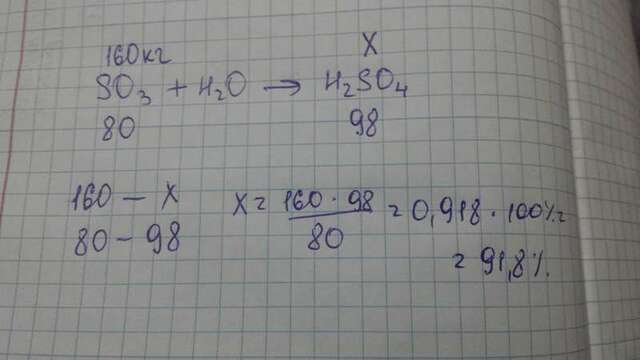 160кг X
SO₃ + H₂O → H₂SO₄
80 98
160 — X
80 — 98
X = 160 · 98 / 80 = 0,918 · 100% =
= 91,8%